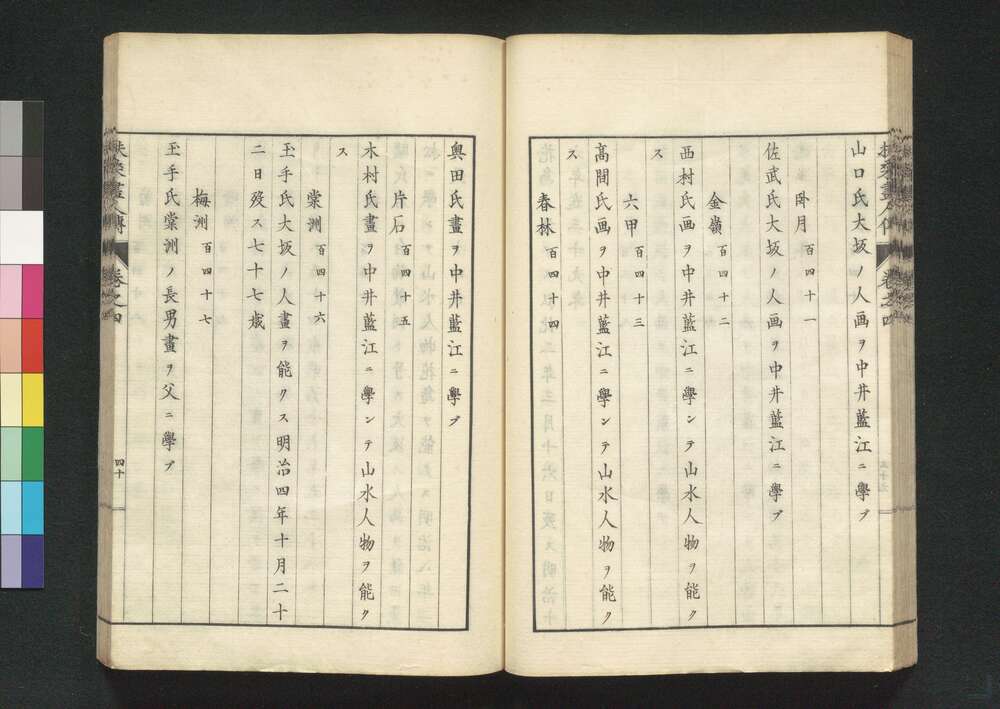 山口氏大坂ノ人画ヲ中井藍江ニ學ブ
卧月 百四十一
佐武氏大坂ノ人画ヲ中井藍江ニ學ブ
金嶺 百四十二
西村氏画ヲ中井藍江ニ學ンテ山水人物ヲ能ク
ス
六甲 百四十三
高間氏画ヲ中井藍江ニ學ンテ山水人物ヲ能ク
ス
春林 百四十四
奥田氏畫ヲ中井藍江ニ學ブ
片石 百四十五
木村氏畫ヲ中井藍江ニ學ンテ山水人物ヲ能ク
ス
棠洲 百四十六
玉手氏大坂ノ人畫ヲ能クス明治四年十月二十
二日歿ス七十七歳
梅洲 百四十七
玉手氏棠洲ノ長男畫ヲ父ニ學ブ
扶桑畫人傳 卷之四
四十